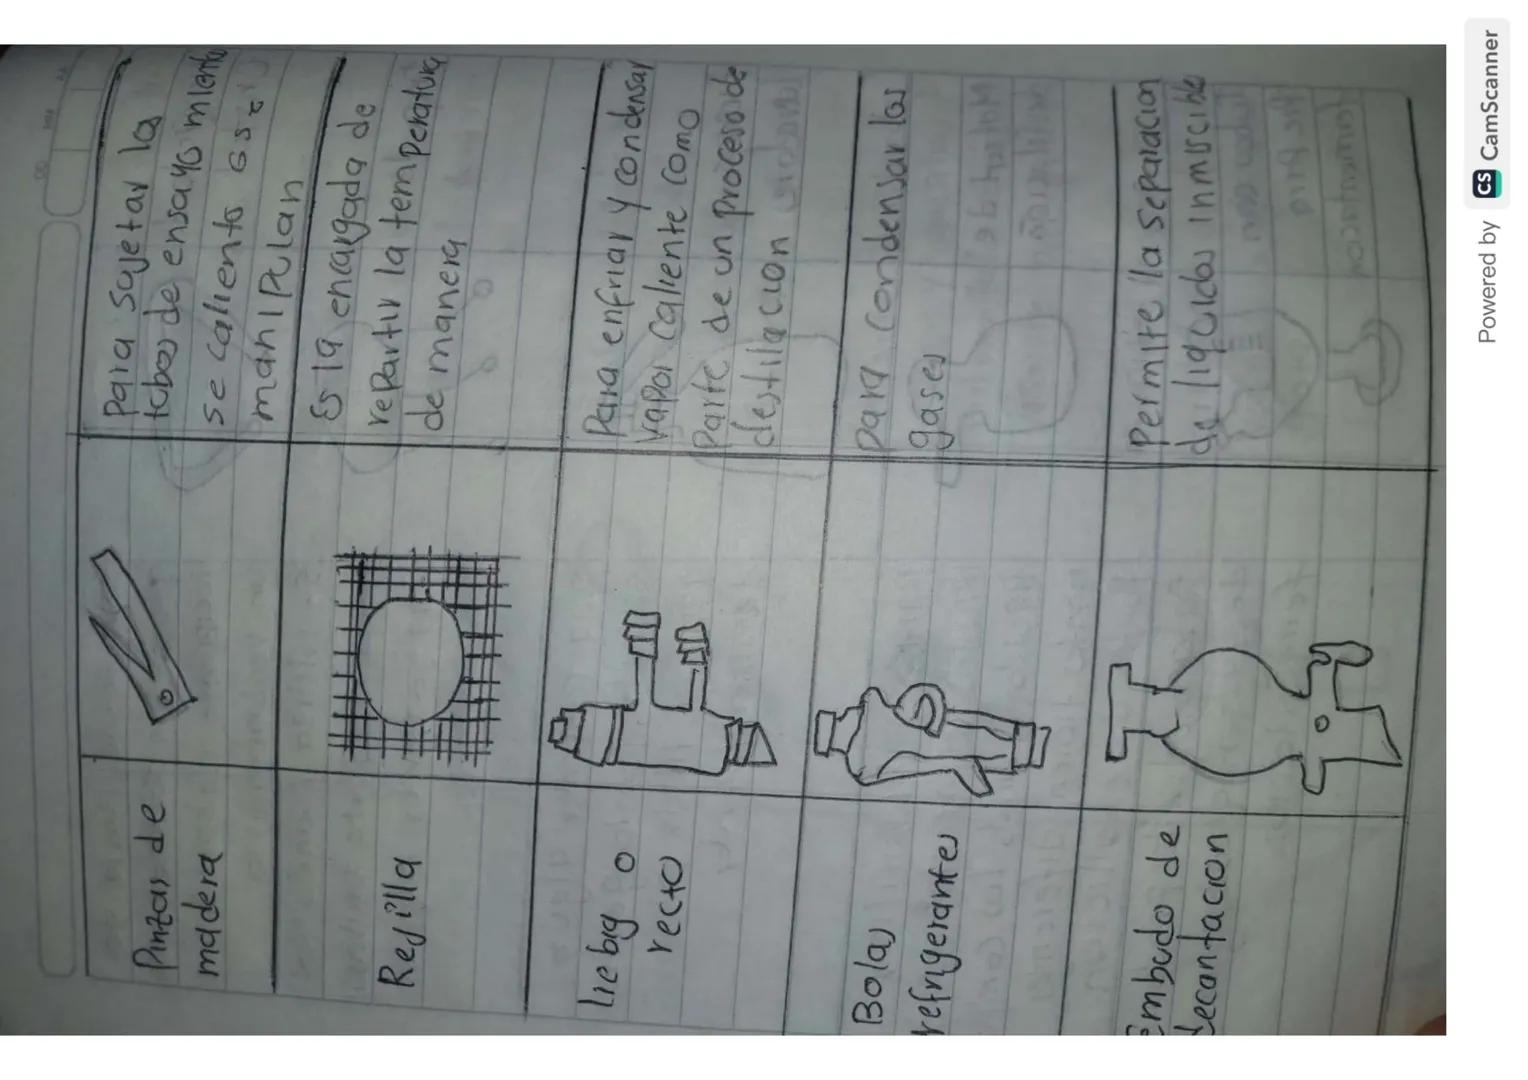 Pinzas de
madera
Para sujetar los
tubos de ensayo mientras
se calienta o se
manipulan
Rejilla
Es la encargada de
repartir la temperatura
de manera
Liebig o
recto
Para enfriar y condensar
vapor caliente como
parte de un proceso de
destilacion
Bolas
refrigerantes
para condensar los
gases
Embudo de
decantacion
Permite la separacion
de liquidos inmiscible
Powered by CS CamScanner